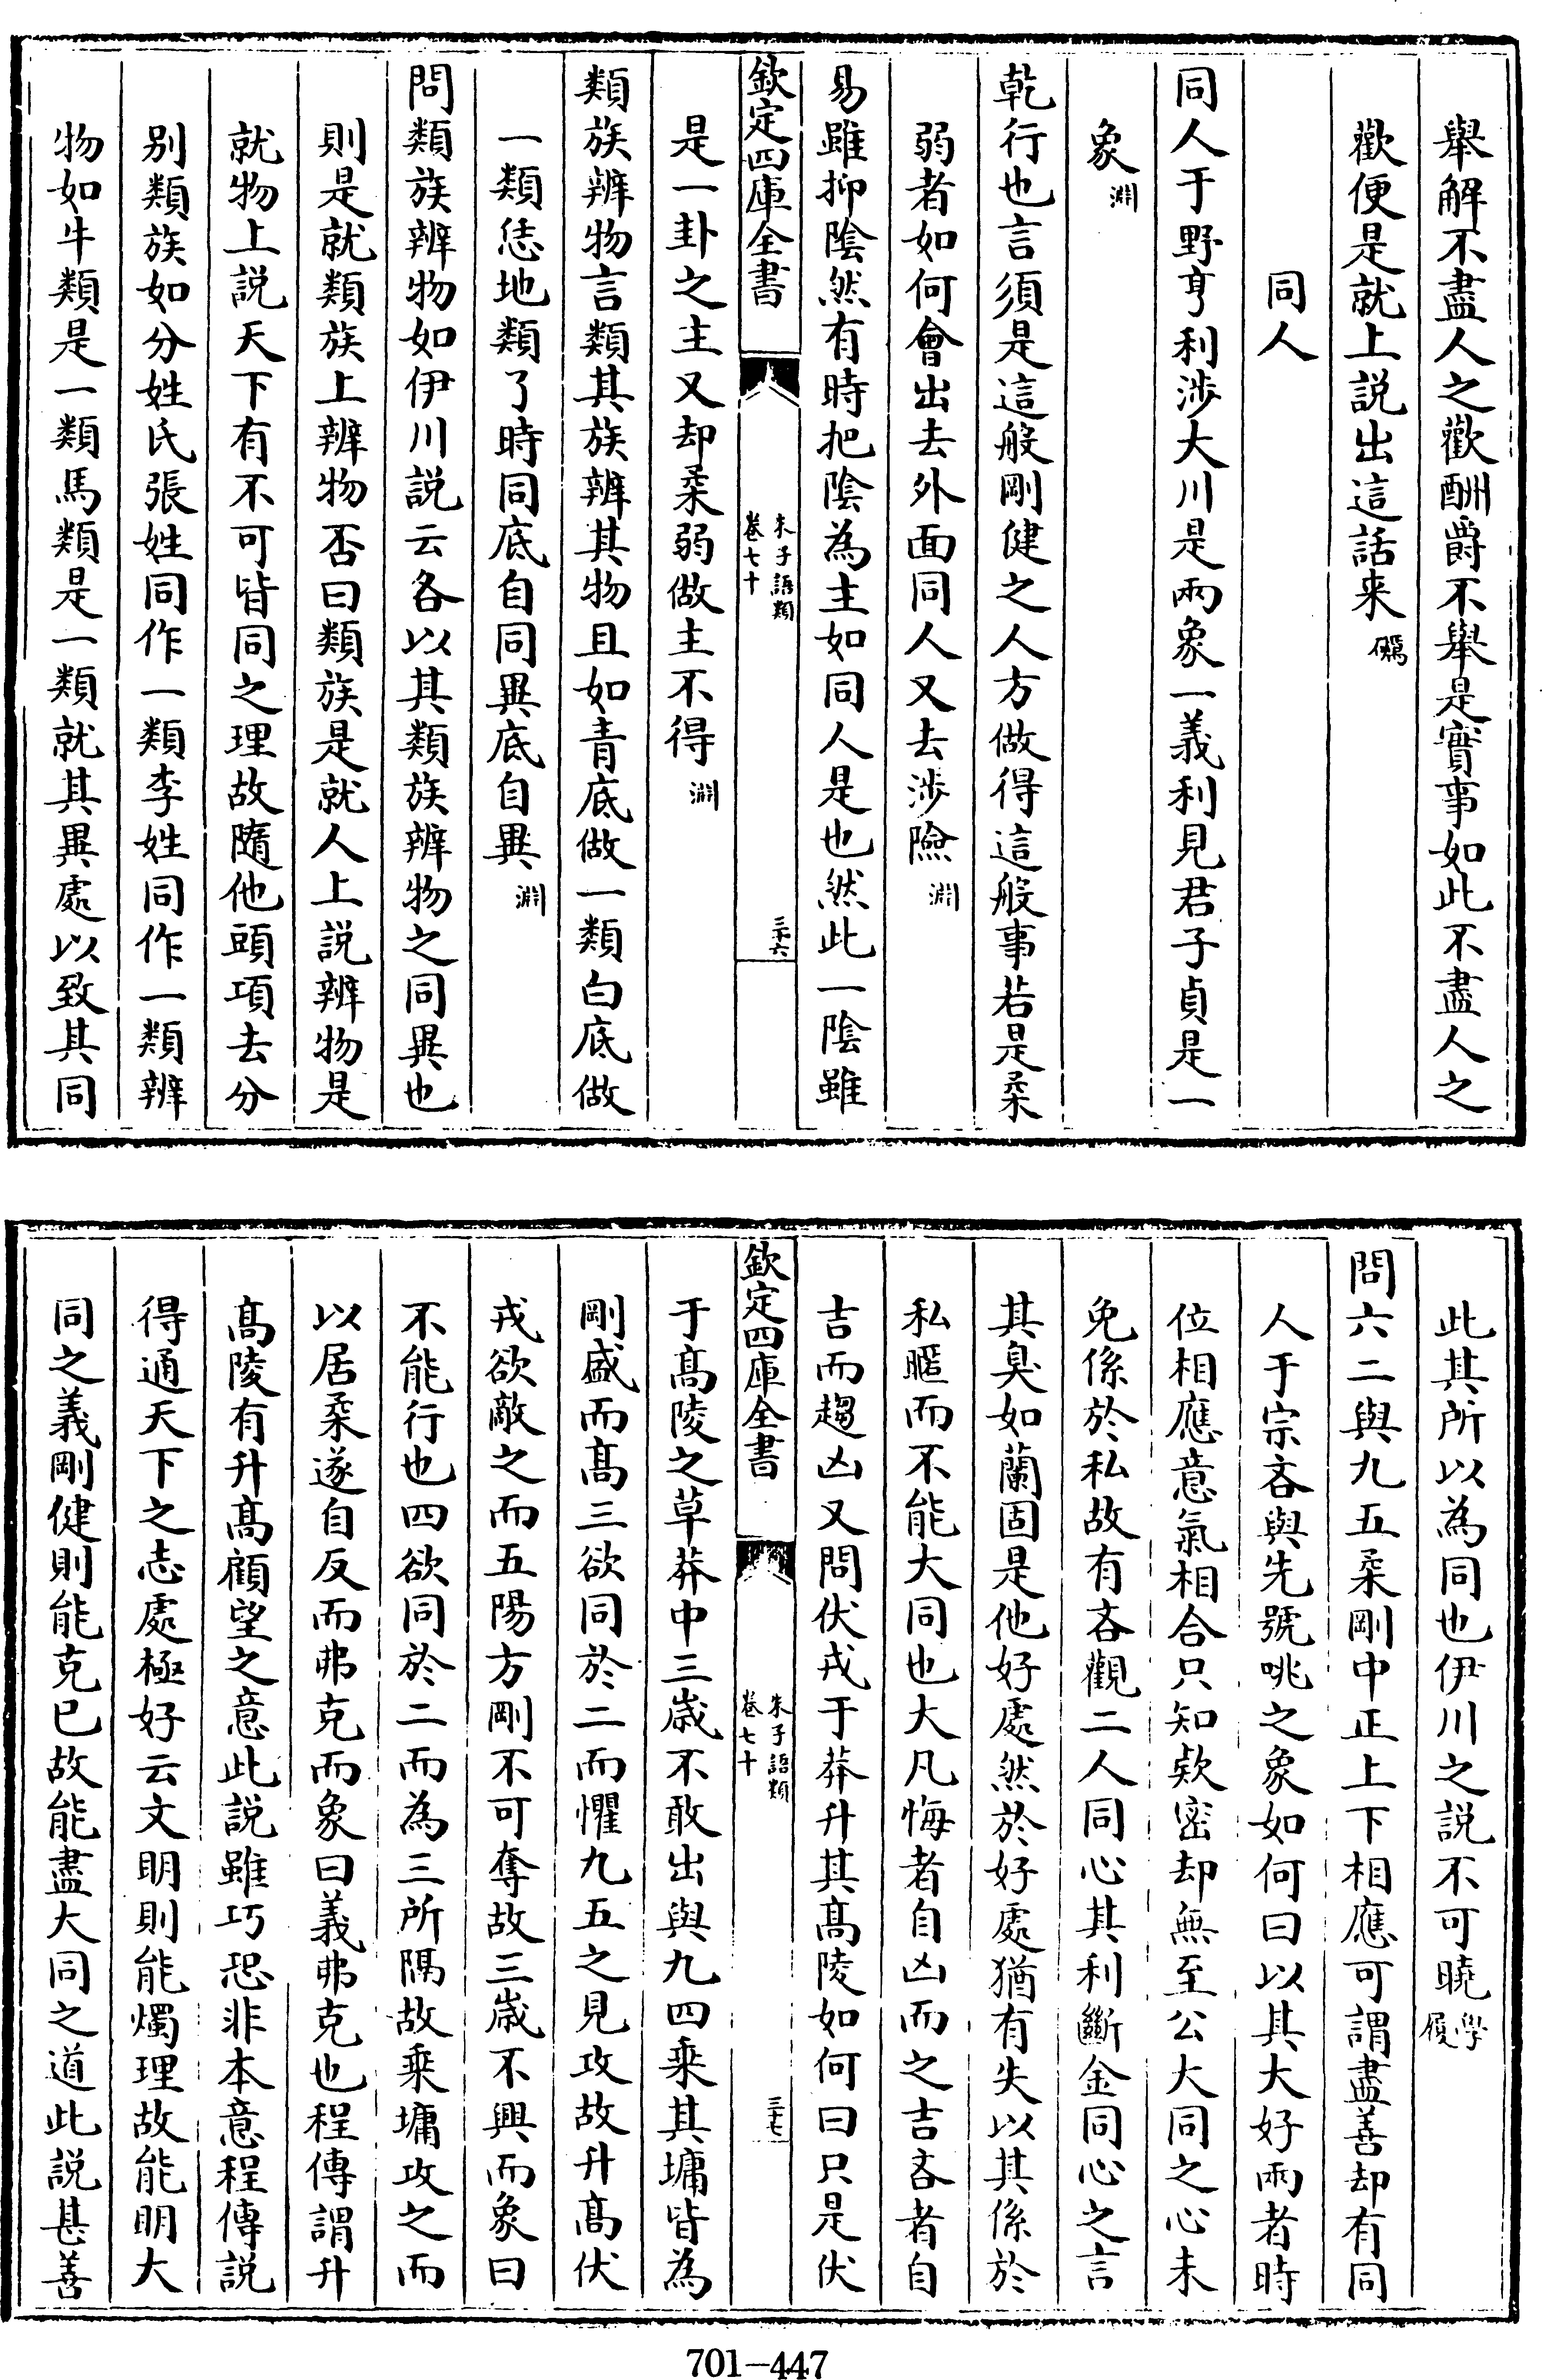 舉解不盡人之歡酬爵不舉是實事如此不盡人之
歡便是就上説出這話来㒚
同人
同人于野亨利涉大川是兩象一義利見君子貞是一
象淵
乾行也言須是這般剛健之人方做得這般事若是柔
弱者如何會出去外面同人又去渉險淵
易雖抑隂然有時把隂為主如同人是也然此一隂雖
欽定四庫全書
朱子語類
卷七十
三十六
是一卦之主又却柔弱做主不得淵
類族辨物言類其族辨其物且如青底做一類白底做
一類恁地類了時同底自同異底自異淵
問類族辨物如伊川説云各以其類族辨物之同異也
則是就類族上辨物否曰類族是就人上説辨物是
就物上説天下有不可皆同之理故隨他頭項去分
别類族如分姓氏張姓同作一類李姓同作一類辨
物如牛類是一類馬類是一類就其異處以致其同
此其所以為同也伊川之説不可曉學履
問六二與九五柔剛中正上下相應可謂盡善却有同
人于宗吝與先號咷之象如何曰以其大好兩者時
位相應意氣相合只知欵密却無至公大同之心未
免係於私故有吝觀二人同心其利斷金同心之言
其臭如蘭固是他好處然於好處猶有失以其係於
私暱而不能大同也大凡悔者自凶而之吉吝者自
吉而趨凶又問伏戎于莽升其髙陵如何曰只是伏
欽定四庫全書
朱子語類
卷七十
三十七
于髙陵之草莽中三歳不敢出與九四乘其墉皆為
剛盛而髙三欲同於二而懼九五之見攻故升髙伏
戎欲敵之而五陽方剛不可奪故三歳不興而象曰
不能行也四欲同於二而為三所隔故乘墉攻之而
以居柔遂自反而弗克而象曰義弗克也程傳謂升
髙陵有升髙顧望之意此説雖巧恐非本意程傳説
得通天下之志處極好云文明則能燭理故能明大
同之義剛健則能克已故能盡大同之道此説甚善
701-447